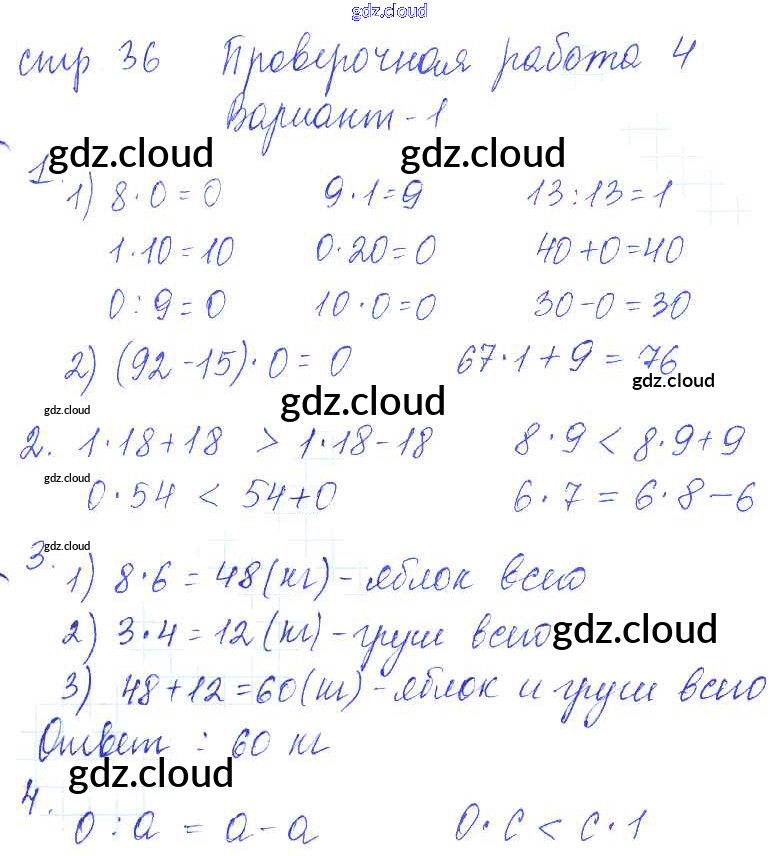 gdz.cloud
стр. 36 Проверочная работа 4
Вариант - 1
gdz.cloud gdz.cloud
1. 1) 8·0=0 9·1=9 13:13=1
1·10=10 0·20=0 40+0=40
0:9=0 10·0=0 30-0=30
2) (92-15)·0=0 67·1+9=76
gdz.cloud
gdz.cloud gdz.cloud
2. 1·18+18 > 1·18-18 8·9 < 8·9+9
gdz.cloud
0·54 < 54+0 6·7=6·8-6
gdz.cloud
3. 1) 8·6=48(кг)-яблок всего
2) 3·4=12(кг)-груш всего gdz.cloud
3) 48+12=60(кг)-яблок и груш всего
Ответ: 60 кг
gdz.cloud
4. 0:a=a-a 0·c<c·1